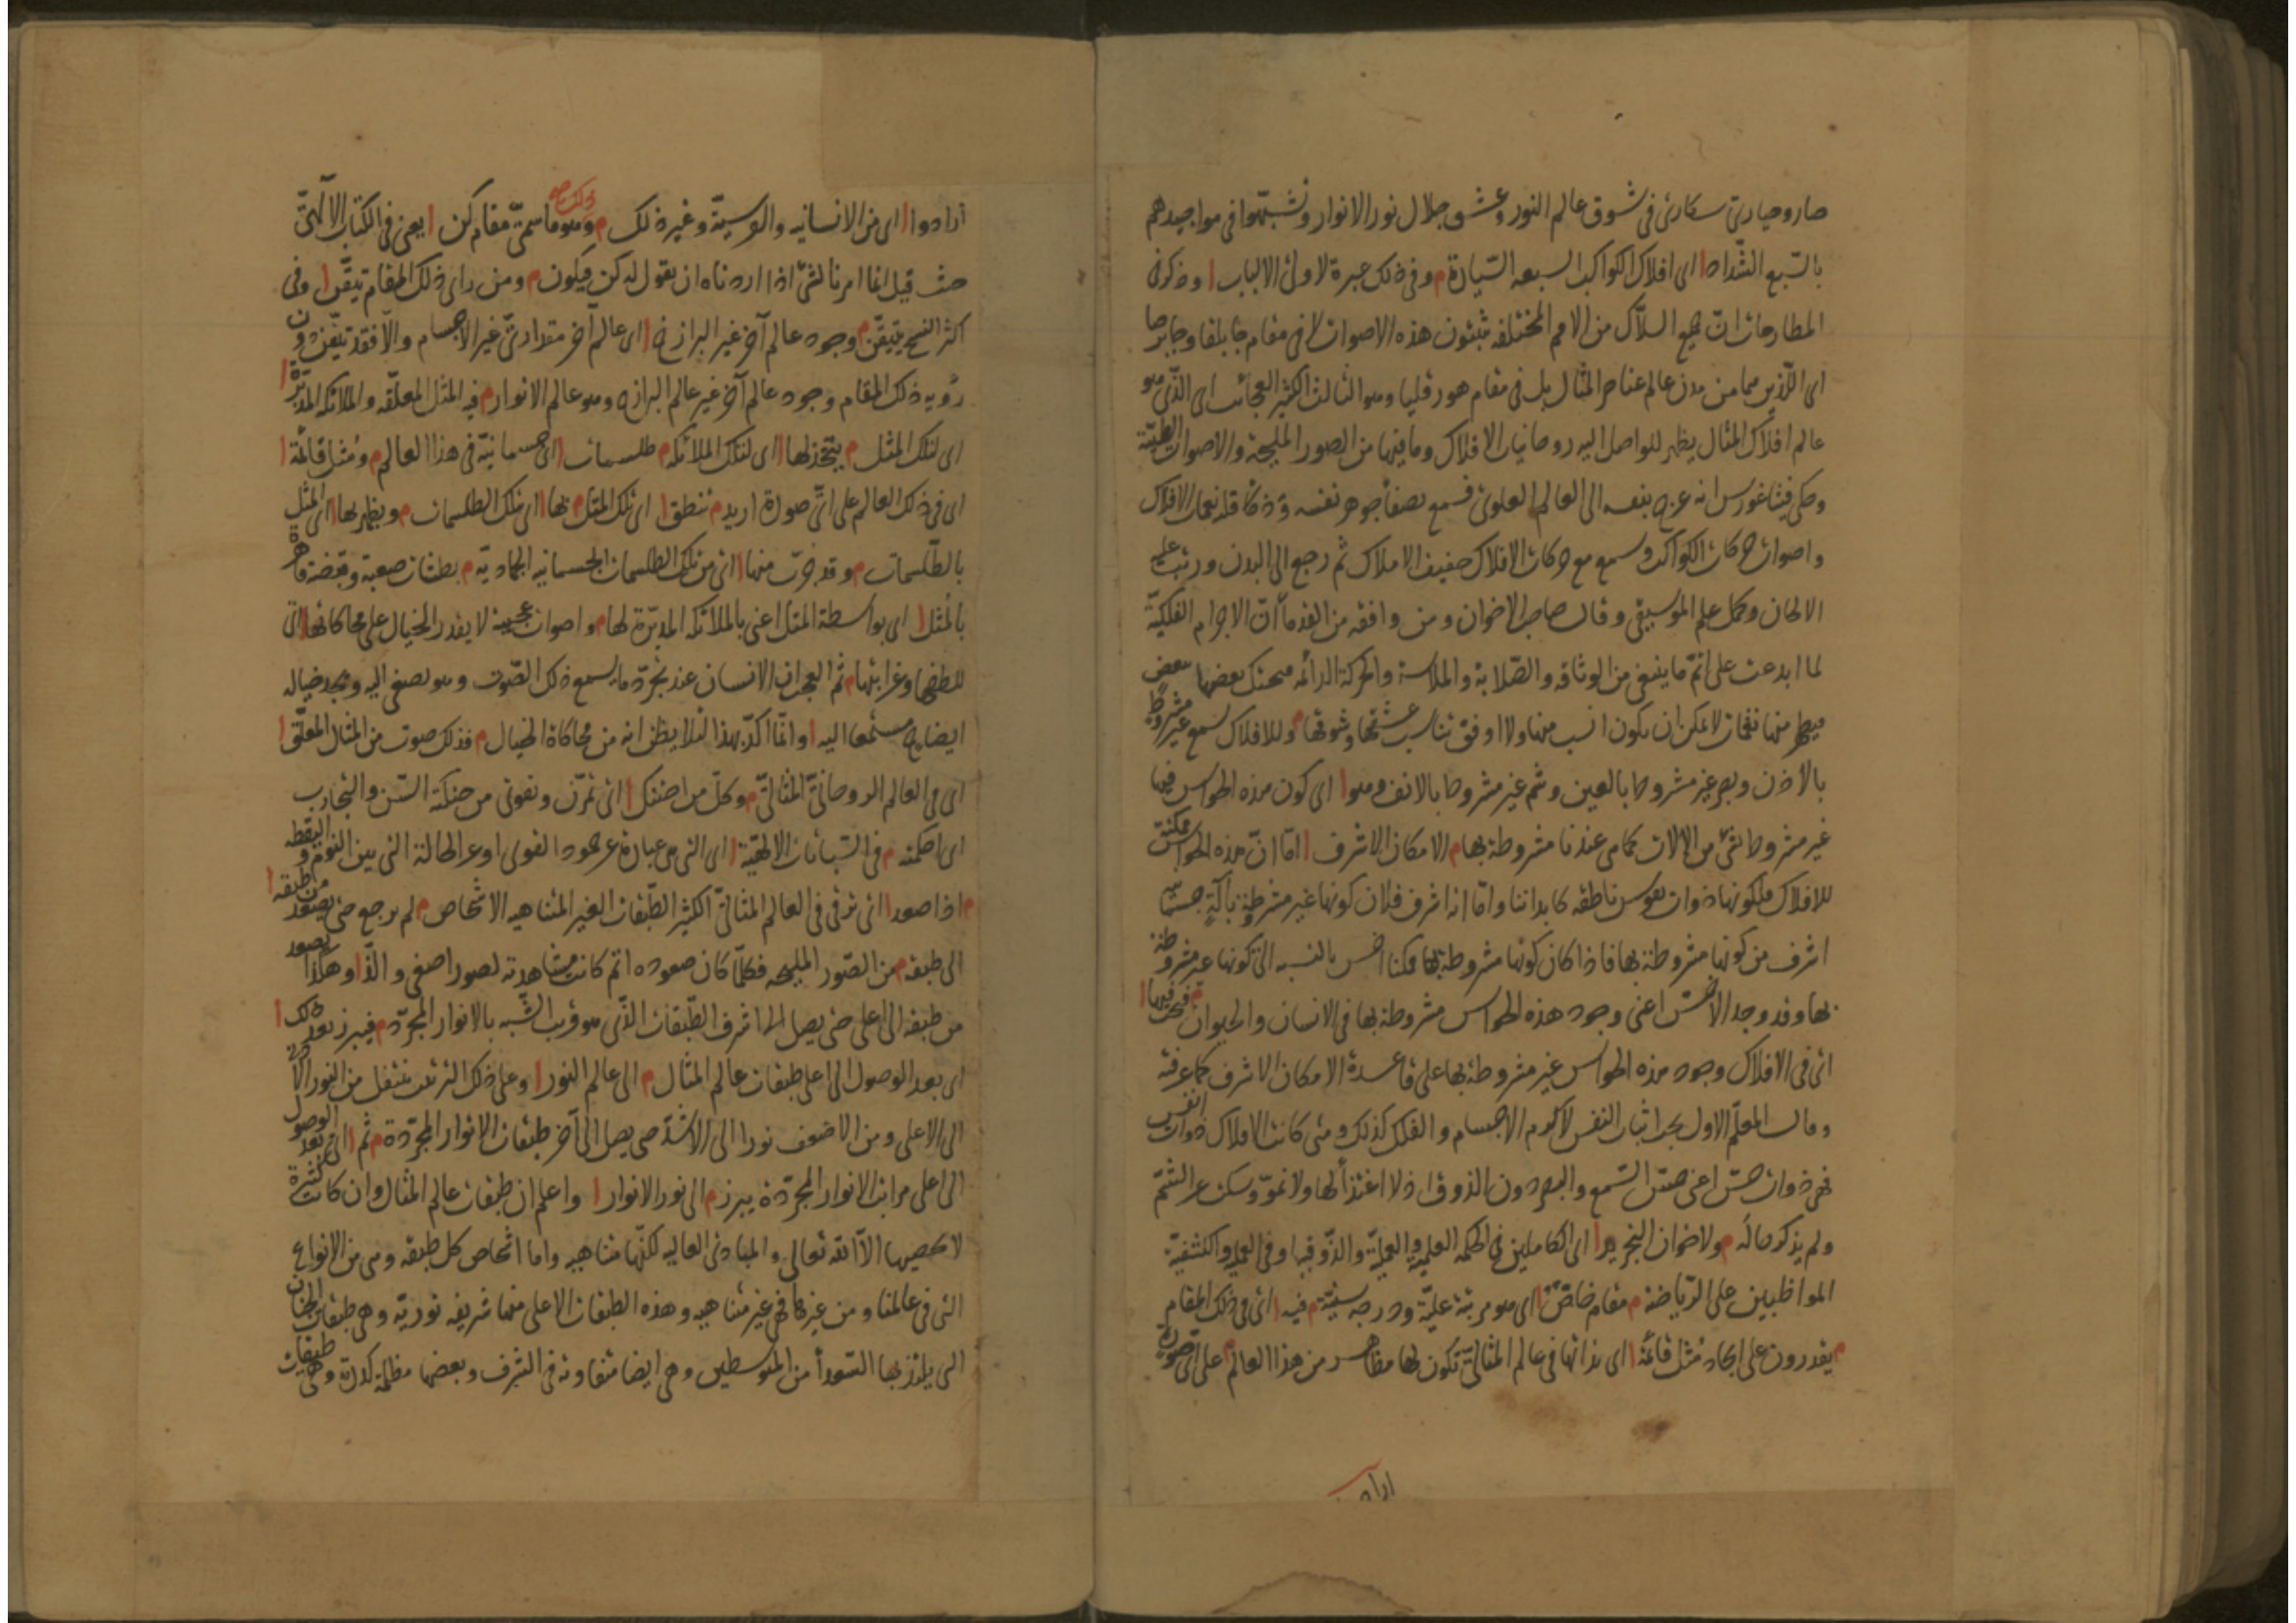 صاروا حيارى سكارى فى شوق عالم النور وعشق جلال نور الانوار وتشبهوا فى مواجيدهم
بالسبع الشداد ا اى افلاك الكواكب السبعه السيارة م وفى ذلك عبرة لاولى الالباب ا وذكر فى
المطارحات ان جميع السلاك من الامم المختلفه يثبتون هذه الاصوات لا فى مقام جابلقا وجابرصا
اى اللذين هما من مدن عالم عناصر المثال بل فى مقام هورقليا وهو الثالث الكثير العجائب اى الذى هو
عالم افلاك المثال يظهر للواصل اليه روحانيات الافلاك وما فيها من الصور المليحة والاصوات الطيبة
وحكى فيثاغورس انه عرج بنفسه الى العالم العلوى فسمع بصفاء جوهر نفسه وذكاء قلبه نغمات الافلاك
واصوات حركات الكواكب وسمع مع حركات الافلاك حفيف الاملاك ثم رجع الى البدن ورتب عليه
الالحان وكمل علم الموسيقى وقال صاحب الاخوان ومن وافقه من القدماء ان الاجرام الفلكية
لما ابدعت على اتم ما ينبغى من الوثاقه والصلابة والملاسة والحركة الدائمه يحتك بعضها ببعض
فيظهر منها نغمات لا يمكن ان يكون انسب منها ولا اوفق تناسب عشقها وشوقها م وللافلاك سمع غير مشروط
بالاذن وبصر غير مشروط بالعين وشم غير مشروط بالانف وهو ا اى كون هذه الحواس فيها
غير مشروط بشى من الالات كما هى عندنا مشروطة بها م الامكان الاشرف ا اما ان هذه الحواس ممكنة
للافلاك فلكونها ذوات نفوس ناطقه كابداننا واما انه اشرف فلان كونها غير مشروطة بآلة جسمانيه
اشرف من كونها مشروطة بها فاذا كان كونها مشروطة بها ممكنا اخس بالنسبه الى كونها غير مشروطة
بها وقد وجد الاخس اعنى وجود هذه الحواس مشروطة بها فى الانسان والحيوان م فيجب فيها ا
اى فى الافلاك وجود هذه الحواس غير مشروطة بها على قاعدة الامكان الاشرف كما عرفته
وقال المعلم الاول يجب اثبات النفس لاكرم الاجسام والفلك كذلك ومتى كانت الافلاك ذوات انفس
فهى ذوات حس اعنى حس السمع والبصر دون الذوق اذ لا اغتذاء لها ولا نمو وسكت عن الشم
ولم يذكر حاله م ولاخوان التجريد ا اى الكاملين فى الحكمه العلمية والعملية والذوقيه وفى العلميه والكشفية
المواظبين على الرياضة م مقام خاص ا اى هو مرتبة علية ودرجه سنية م فيه ا اى فى ذلك المقام
م يقدرون على ايجاد مثل قائمة ا اى بذاتها فى عالم المثالى تكون لها مظاهر من هذا العالم م على اى صورة
ارادوا
ارادوا ا اى من الانسانيه والفرسية وغير ذلك م وهو ما سمى مقام كن ا يعنى فى الكتاب الالهى
ذلك صح
حيث قيل انما امرنا لشئ اذا اردناه ان نقول له كن فيكون م ومن راى ذلك المقام تيقن ا وفى
اكثر النسخ يتيقن م وجود عالم آخر غير البرازخ ا اى عالم آخر مقدارى غير الاجسام والا فقد تيقن دون
رؤيه ذلك المقام وجود عالم آخر غير عالم البرازخ وهو عالم الانوار م فيه المثل المعلقه والملائكه المدبرة ا
اى لتلك المثل م يتخذ لها ا اى لتلك الملائكه م طلسمات ا اى جسمانية فى هذا العالم م ومثل قائمة ا
اى فى ذلك العالم على اى صورة اريد م تنطق ا اى تلك المثل م بها ا اى بتلك الطلسمات م ويظهر بها ا اى المثل
بالطلسمات م وقد جرت منها ا اى من تلك الطلسمات الجسمانيه الجمادية م بطشات صعبة وقبضة قاهرة
بالمثل ا اى بواسطة المثل اعنى بالملائكه المدبرة لها م واصوات عجيبة لا يقدر الخيال على محاكاتها ا اى
للطفها وغرابتها م ثم العجب ان الانسان عند تجرد ما يسمع ذلك الصوت وهو يصغى اليه ويجد خياله
ايضا ح مستمعا اليه ا وانما اكد بهذا لئلا يظن انه من محاكاة الخيال م فذلك صوت من المثال المعلق ا
اى فى العالم الروحانى المثالى م وكل من احتنك ا اى تمرن وتقوى من حنكته السن والتجارب
اى احكمته م فى السباتات الالهية ا اى التى هى عبارة عن همود القوى او عن الحالة التى بين النوم واليقظه
م اذا صعد ا اى ترقى فى العالم المثالى الكثير الطبقات الغير المتناهيه الاشخاص م لم يرجع حتى يصعد من طبقه ا
الى طبقه م من الصور المليحه فكلما كان صعوده اتم كانت مشاهدته لصور اصفى والذ ا وهكذا يصعد
من طبقه الى اعلى حتى يصل الى اشرف الطبقات الذى هو قريب الشبه بالانوار المجرده م فيبرز بعد ذلك ا
اى بعد الوصول الى اعلى طبقات عالم المثال م الى عالم النور ا وعلى ذلك الترتيب ينتقل من النور الادنى
الى الاعلى ومن الاضعف نورا الى الاشد حتى يصل الى آخر طبقات الانوار المجردة م ثم ا اى بعد الوصول
الى اعلى مراتب الانوار المجردة يبرز م الى نور الانوار ا واعلم ان طبقات عالم المثال وان كانت كثيرة
لا يحصيها الا الله تعالى والمبادى العاليه لكنها متناهيه واما اشخاص كل طبقه وهى من الانواع
التى فى عالمنا ومن غيرها فهى غير متناهيه وهذه الطبقات الاعلى منها شريفه نورية وهى طبقات الجنان
التى يلتذ بها السعداء من المتوسطين وهى ايضا متفاوته فى الشرف وبعضها مظلمة كدرة وهى طبقات